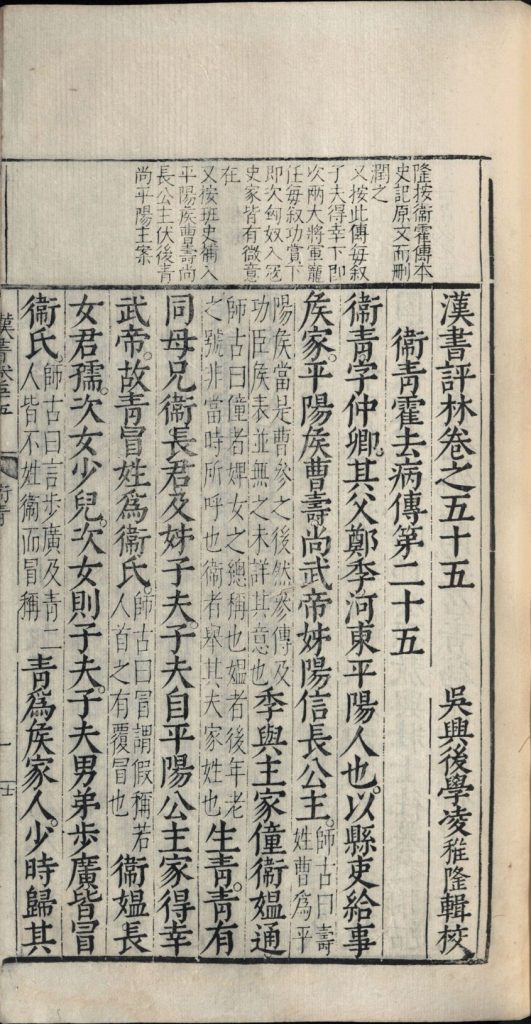 隆按衞霍傳本
史記原文而刪
潤之
又按此傳每叙
子夫得幸下即
次兩大將軍寵
任每叙功賞下
即次匈奴入寇
史家皆有微意
在
又按班史補入
平陽矦曹壽尚
長公主伏後青
尚平陽主案
漢書評林卷之五十五
吳興後學凌稚隆輯校
衞青霍去病傳第二十五
衞青字仲卿其父鄭季河東平陽人也以縣吏給事
矦家平陽矦曹壽尚武帝姊陽信長公主師古曰壽姓曹爲平
陽矦當是曹參之後然參傳及功臣矦表並無之未詳其意也季與主家僮衞媼通
師古曰僮者婢女之總稱也媼者後年老之號非當時所呼也衞者舉其夫家姓也生青青有
同母兄衞長君及姊子夫子夫自平陽公主家得幸
武帝故青冒姓爲衞氏師古曰冒謂假稱若人首之有覆冒也衞媼長
女君孺次女少兒次女則子夫子夫男弟步廣皆冒
衞氏師古曰言步廣及青二人皆不姓衞而冒稱青爲矦家人少時歸其